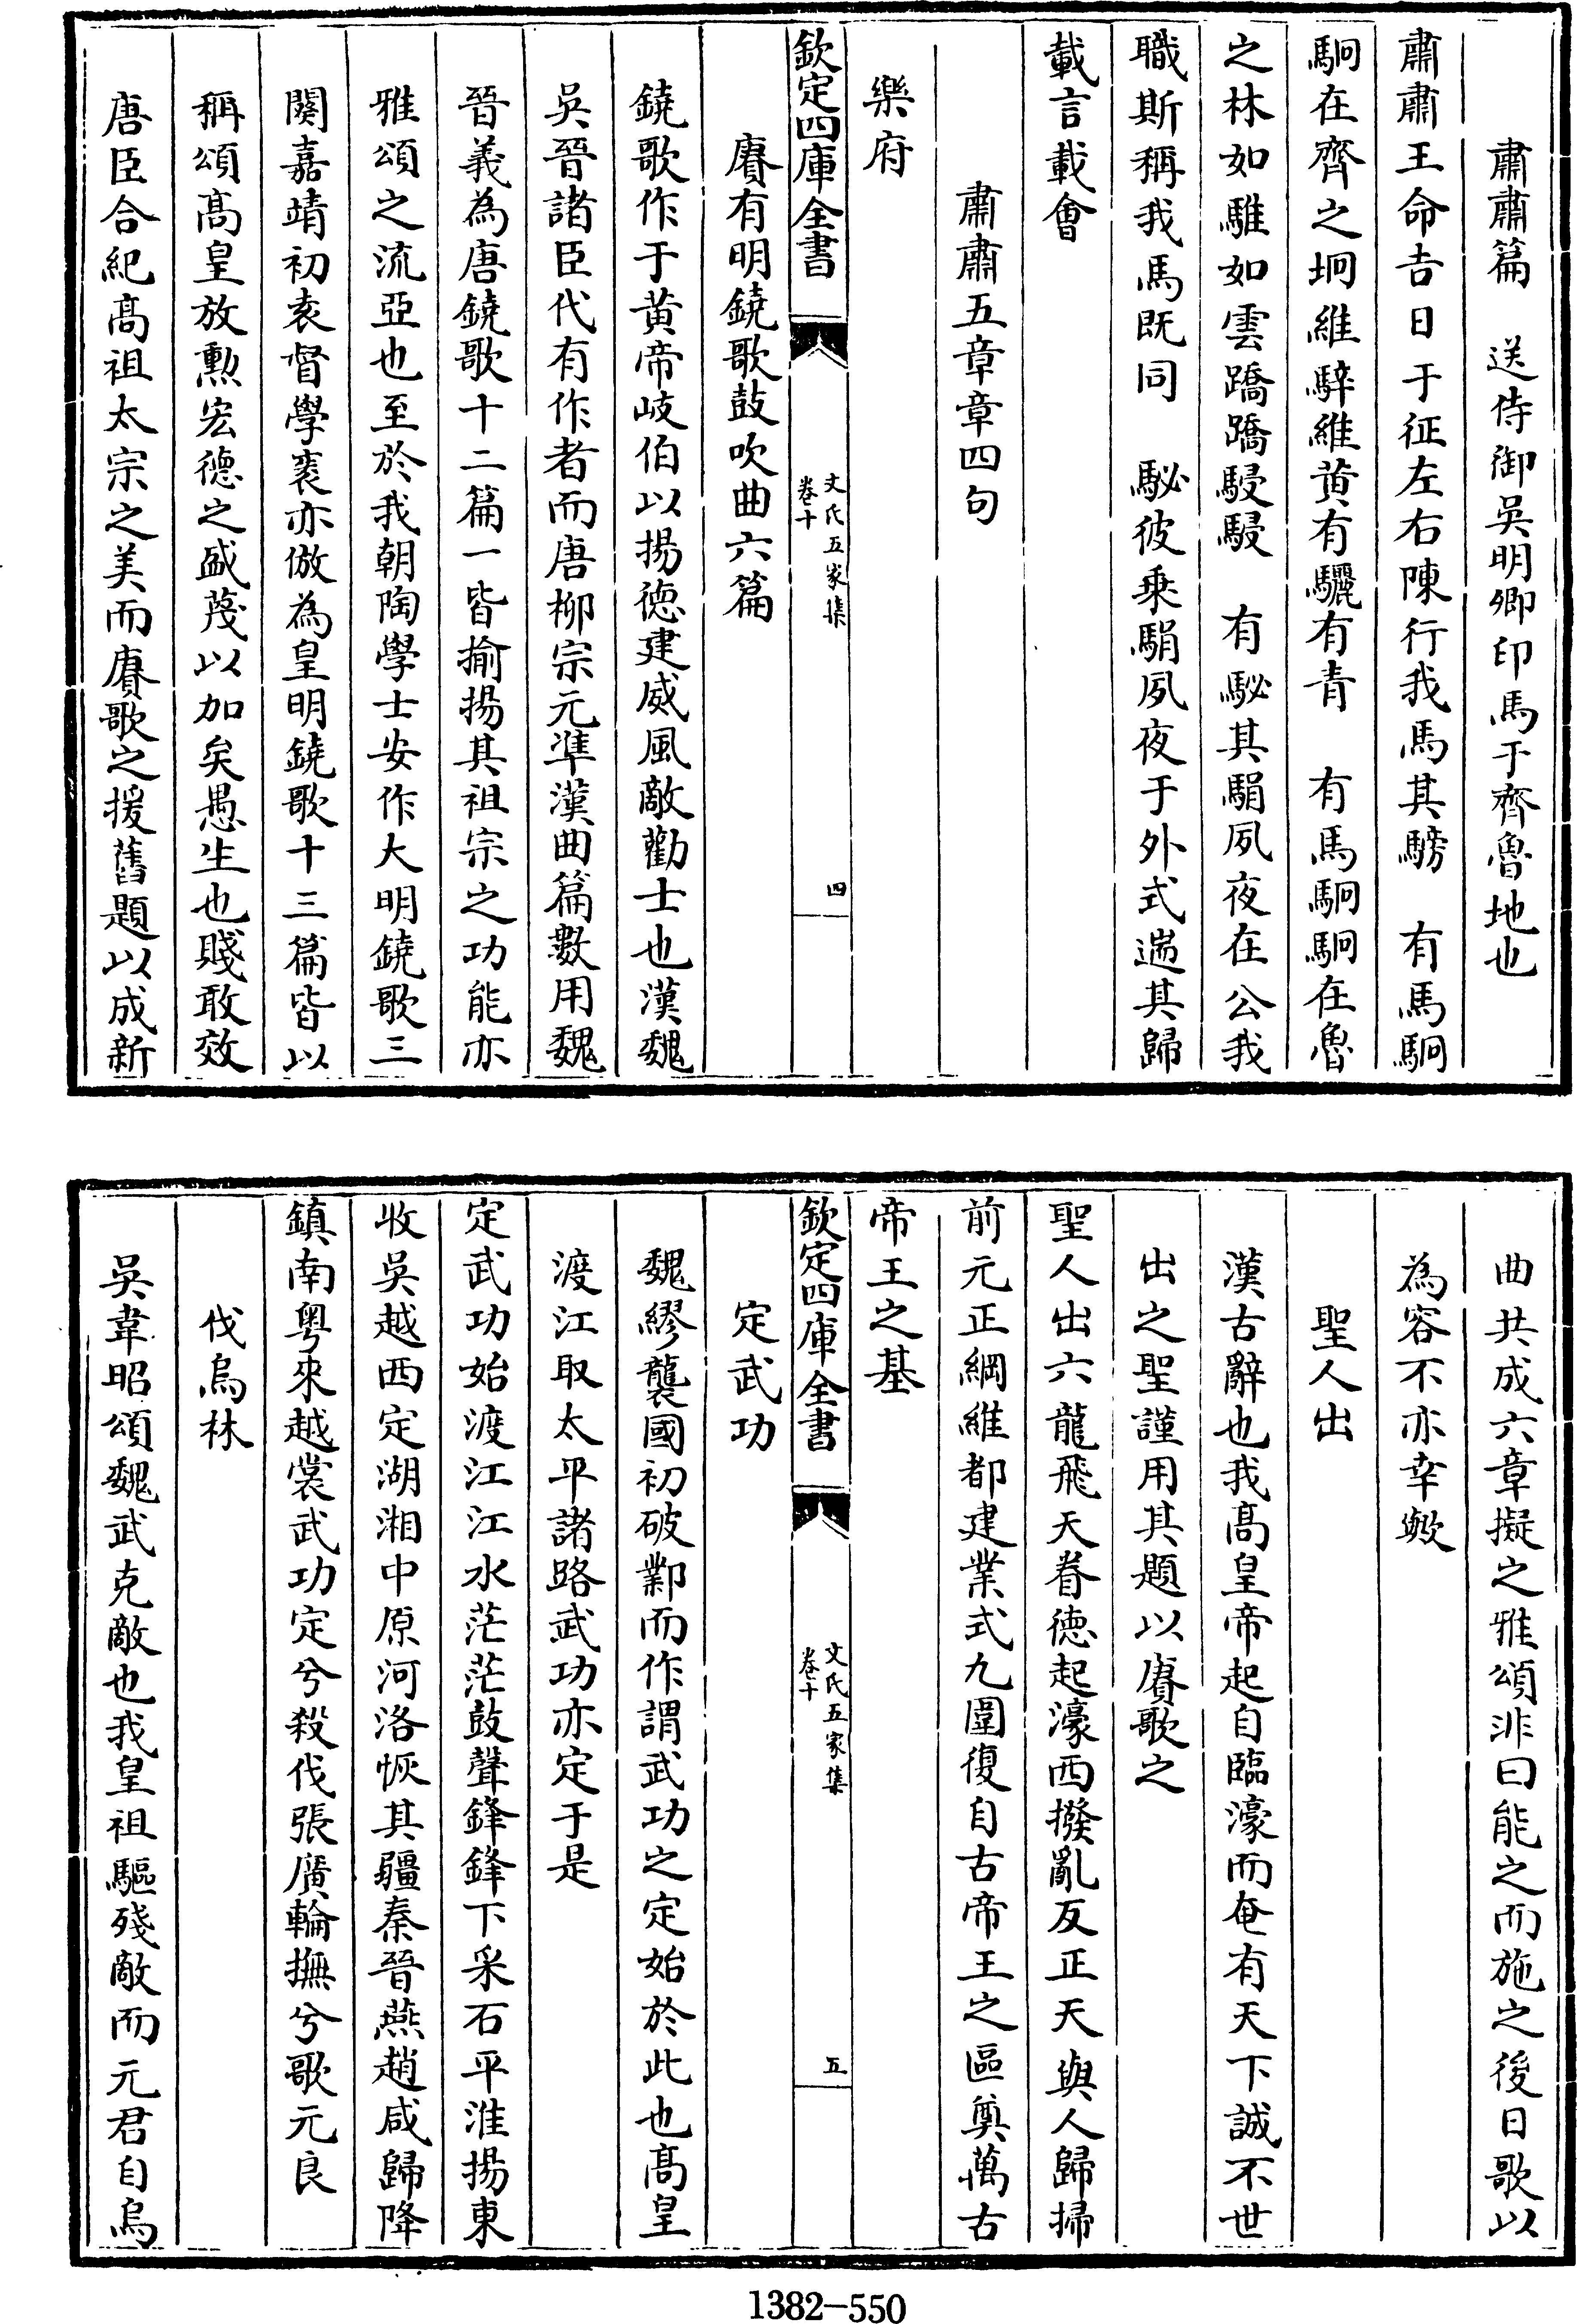 肅肅篇　送侍御吳明卿印馬于齊魯地也
肅肅王命吉日于征左右陳行我馬其騯　有馬駉
駉在齊之坰維騂維黃有驪有青　有馬駉駉在魯
之林如騅如雲蹻蹻駸駸　有駜其駽夙夜在公我
職斯稱我馬既同　駜彼乗駽夙夜于外式遄其歸
載言載會
肅肅五章章四句
樂府
欽定四庫全書
文氏五家集
卷十
四
賡有明鐃歌鼓吹曲六篇
鐃歌作于黃帝岐伯以揚德建威風敵勸士也漢魏
吳晉諸臣代有作者而唐柳宗元凖漢曲篇數用魏
晉義為唐鐃歌十二篇一皆揄揚其祖宗之功能亦
雅頌之流亞也至於我朝陶學士安作大明鐃歌三
闋嘉靖初袁督學袠亦倣為皇明鐃歌十三篇皆以
稱頌髙皇放勲宏德之盛蔑以加矣愚生也賤敢效
唐臣合紀髙祖太宗之美而賡歌之援舊題以成新
曲共成六章擬之雅頌非曰能之而施之後日歌以
為容不亦幸歟
聖人出
漢古辭也我髙皇帝起自臨濠而奄有天下誠不世
出之聖謹用其題以賡歌之
聖人出六龍飛天眷德起濠西撥亂反正天與人歸掃
前元正綱維都建業式九圍復自古帝王之區奠萬古
帝王之基
欽定四庫全書
文氏五家集
卷十
五
定武功
魏繆襲國初破鄴而作謂武功之定始於此也髙皇
渡江取太平諸路武功亦定于是
定武功始渡江江水茫茫鼓聲鋒鋒下采石平淮揚東
收吳越西定湖湘中原河洛恢其疆秦晉燕趙咸歸降
鎮南粵來越裳武功定兮殺伐張廣輪撫兮歌元良
伐烏林
吳韋昭頌魏武克敵也我皇祖驅殘敵而元君自烏
1382－550